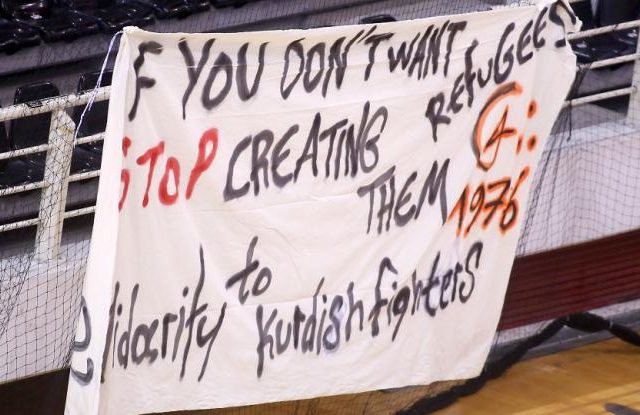 F YOU DON'T WANT
REFUGEES
STOP CREATING
THEM
Ⓐ:
1976
lidarity to
kurdish fighters